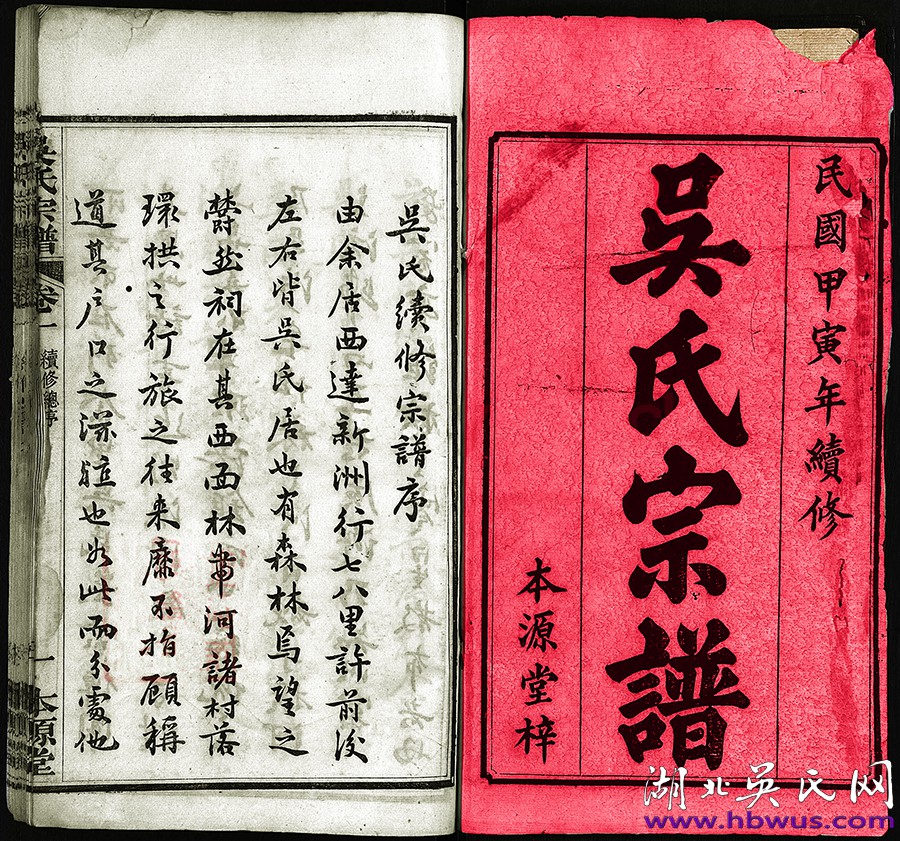 民國甲寅年續修
吳氏宗譜
本源堂梓
吳氏續修宗譜序
由余居西達新洲行七八里許前後
左右皆吳氏居也有森林焉望之
欝然祠在其西面林帶河諸村落
環拱之行旅之往来靡不指顧稱
道其戶口之滋也如此而分處他
吳氏宗譜
卷一
續修總序
一
本源堂
湖北吳氏网
www.hbwus.com